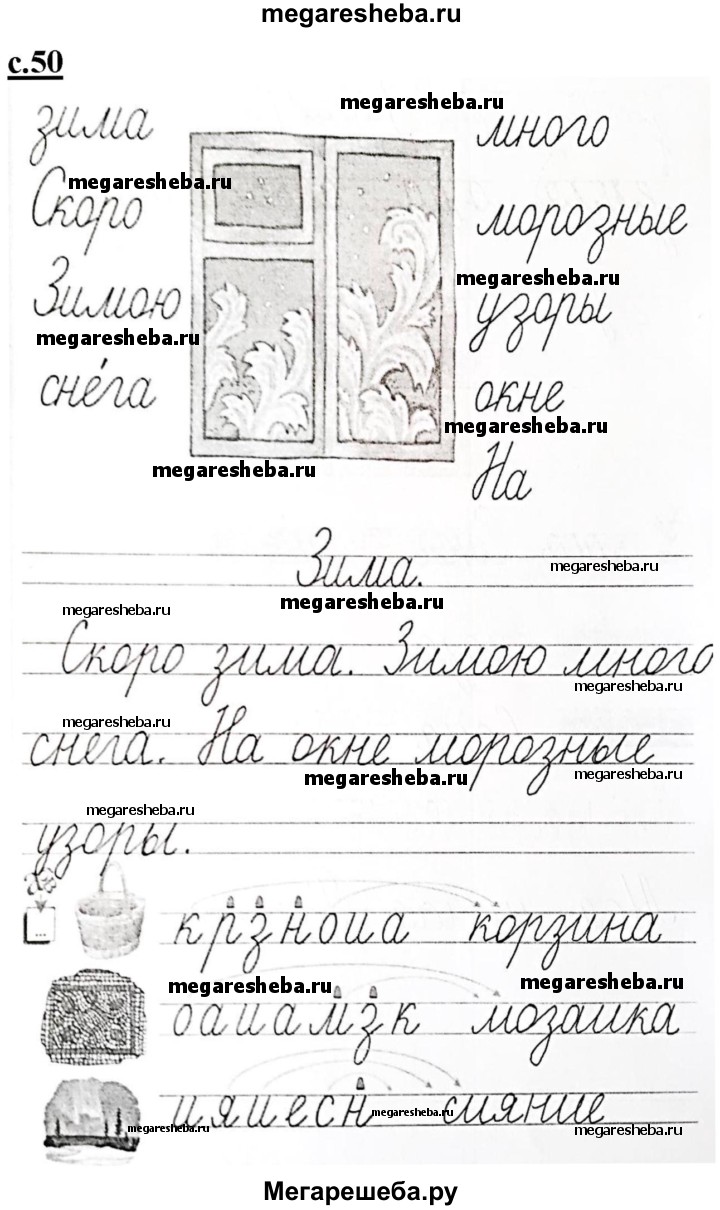 megaresheba.ru
с.50
megaresheba.ru
зима
много
megaresheba.ru
Скоро
морозные
megaresheba.ru
Зимою
узоры
megaresheba.ru
сне́га
окне
megaresheba.ru
megaresheba.ru
На
Зима.
megaresheba.ru
megaresheba.ru
megaresheba.ru
Скоро зима. Зимою много
megaresheba.ru
megaresheba.ru
снега. На окне морозные
megaresheba.ru
megaresheba.ru
megaresheba.ru
узоры.
к р з н о и а корзина
megaresheba.ru
megaresheba.ru
о а и а м з к мозаика
и я и е с н сияние
megaresheba.ru
megaresheba.ru
megaresheba.ru
Мегарешеба.ру